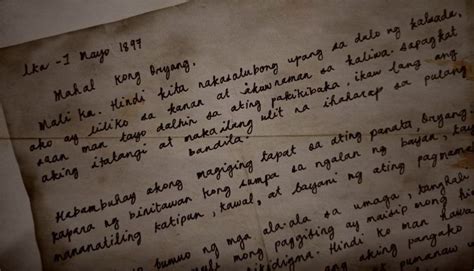 ika -1 Mayo 1897
Mahal kong Oryang,
Mali ka. Hindi kita nakasalubong upang sa dulo ng kalsada,
ako ay liliko sa kanan at ikaw naman sa kaliwa. Sapagkat
saan man tayo dalhin sa ating pakikibaka, ikaw lang ang
aking itatangi at makailang ulit na ihaharap sa pulang
bandila.
Habambuhay akong magiging tapat sa ating panata, Oryang,
kapara ng binitawan kong sumpa sa ngalan ng bayan,
mananatiling katipun, kawal, at bayani ng ating pagmamah
bumuo ng mga ala-ala sa umaga, tanghali
mong paggising ay maisip mong hi
Hindi ko man hawa
ang ating pangako
pumanaw